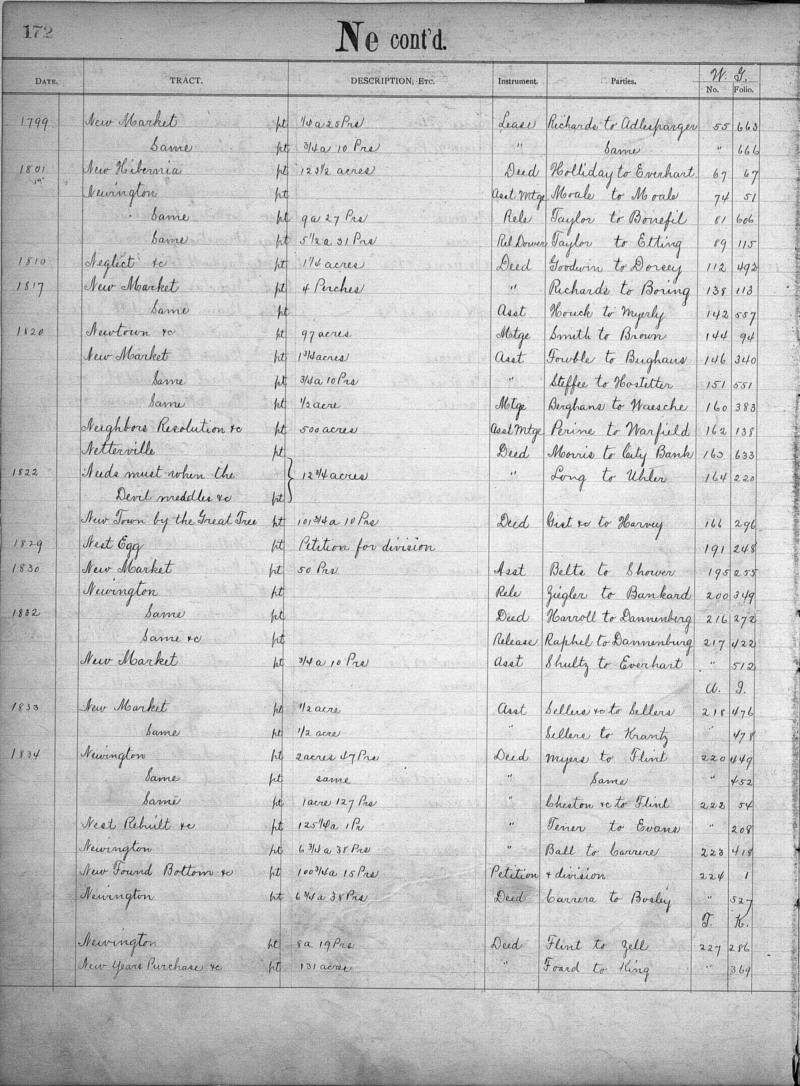 172
Ne cont'd.
W. G.
DATE. TRACT. DESCRIPTION, ETC. Instrument. Parties. No. Folio.
1799 New Market pt 1/4 a 25 Prs Lease Richards to Adlesparger 55 663
Same pt 3/4 a 10 Prs " Same " 666
1801 New Hibernia pt 123 1/2 acres Deed Holliday to Everhart 67 67
Newington pt Asst Mtge Moale to Moale 74 51
Same pt 9 a 27 Prs Rele Taylor to Bonefil 81 606
Same pt 5 1/2 a 31 Prs Rel Dower Taylor to Etting 89 115
1810 Neglect &c pt 1 1/4 acres Deed Goodwin to Dorsey 112 492
1817 New Market pt 4 Perches " Richards to Boring 138 113
Same pt Asst Houck to Myerly 142 557
1820 Newtown &c pt 97 acres Mtge Smith to Brown 144 94
New Market pt 1 3/4 acres Asst Fowble to Bughaus 146 340
Same pt 3/4 a 10 Prs " Steffee to Hostetter 151 551
Same pt 1/2 acre Mtge Berghans to Waesche 160 383
Neighbors Resolution &c pt 500 acres Asst Mtge Perine to Warfield 162 138
Netterville pt Deed Morris to City Bank 163 633
1822 Needs must when the 12 3/4 acres " Long to Uhler 164 220
Devil meddles &c pt
New Town by the Great Tree pt 101 3/4 a 10 Prs Deed Gist &c to Harvey 166 296
1829 Nest Egg pt Petition for division 191 248
1830 New Market pt 50 Prs Asst Belts to Shower 195 255
Newington pt Rele Zeigler to Bankard 200 349
1832 Same pt Deed Harroll to Dannenberg 216 272
Same &c pt Release Raphel to Dannenburg 217 422
New Market pt 3/4 a 10 Prs Asst Shultz to Everhart " 512
A. I.
1833 New Market pt 1/2 acre Asst Sellers &c to Sellers 218 476
Same pt 1/2 acre " Sellers to Krantz " 478
1834 Newington pt 2 acres 47 Prs Deed Myers to Flint 220 449
Same pt same " Same " 452
Same pt 1 acre 127 Prs " Cheston &c to Flint 222 54
Nest Rebuilt &c pt 125 1/4 a 1 Pr " Tener to Evans " 208
Newington pt 6 3/4 a 38 Prs " Ball to Carrere 223 418
New Found Bottom &c pt 100 3/4 a 15 Prs Petition & division 224 1
Newington pt 6 3/4 a 38 Prs Deed Carrera to Bosley " 527
T. K.
Newington pt 8 a 19 Prs Deed Flint to Zell 227 286
New Years Purchase &c pt 131 acres " Foard to King " 369